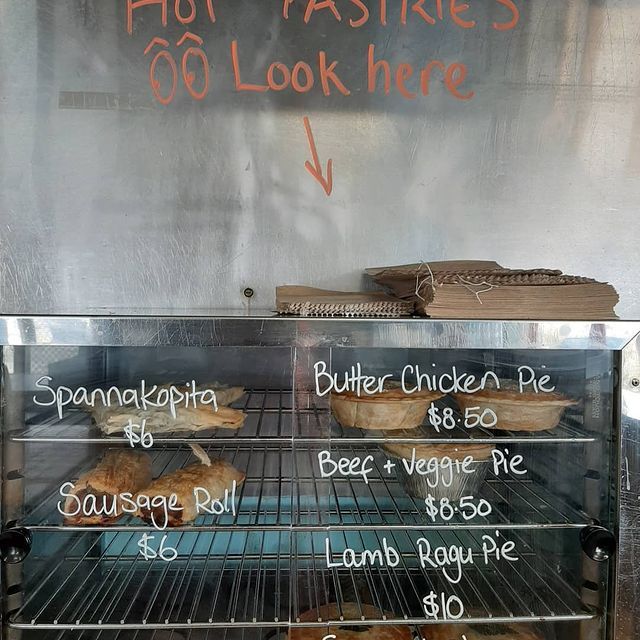 HOT PASTRIES
Look here
Spannakopita
$6
Sausage Roll
$6
Butter Chicken Pie
$8.50
Beef + Veggie Pie
$8.50
Lamb Ragu Pie
$10